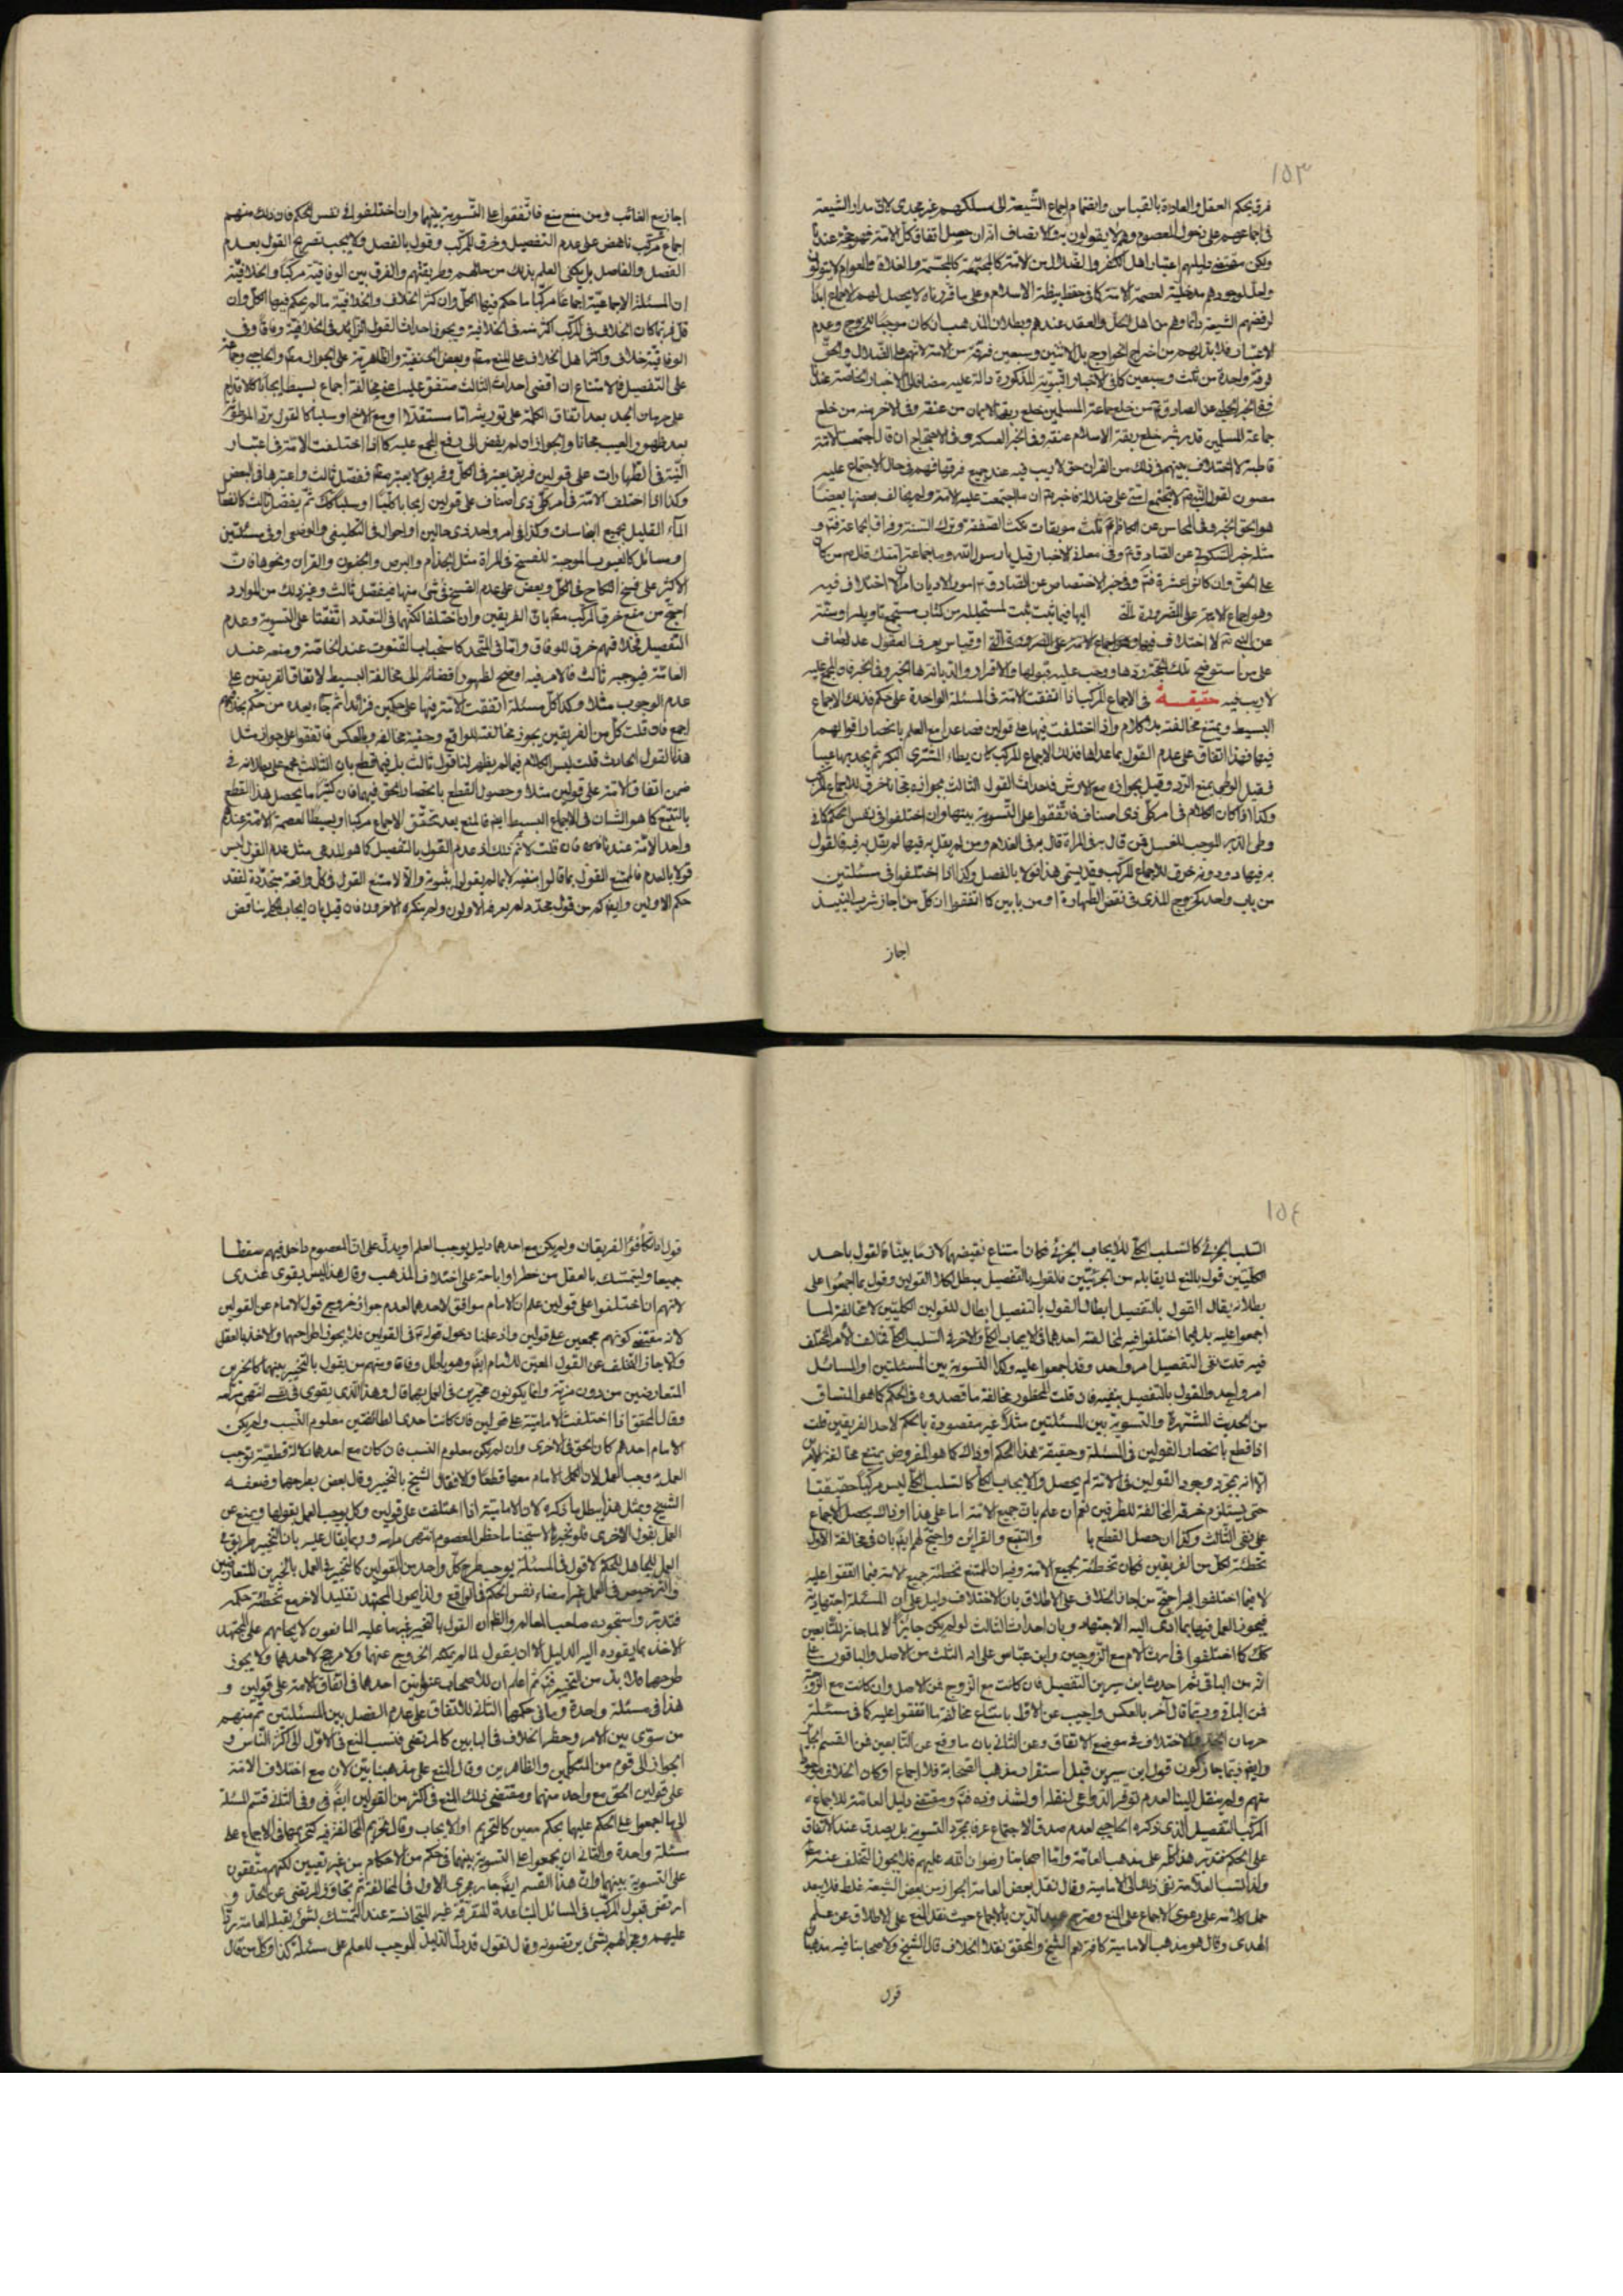 ١٥٣
فرق بحكم العقل والعادة بالقياس وانضمام اجماع الشيعة الى مسلكهم غير مجدى لان مدار الشيعة
فى اجماعهم على دخول المعصوم وهم لا يقولون به والانصاف انه ان حصل اتفاق كل الامة فهو حجة عندنا
ولكن مقتضى دليلهم اعتبار اهل الكفر والضلال من الامة كالمجسمة والغلاة والعوام
لرفضهم الشيعة دائما وهم من اهل الحل والعقد عندهم وبطلان المذهب ان كان موجبا للخروج وعدم
الاعتبار فلا بد لهم من اخراج الخوارج بل الاثنتين وسبعين فرقة من الامة لانهم على الضلال والحق
فرقة واحدة من ثلث وسبعين كما فى الاخبار النبوية المذكورة دالة عليه مضافا الى الاخبار الخاصة
عن الصادق من خلع جماعة المسلمين خلع ربقة الايمان من عنقه وفى الاخر منه من خلع
جماعة المسلمين قدر شبر خلع ربقة الاسلام عنقه وفى الخبر العسكرى فى الاحتجاج ان قال اجتمعت الامة
قاطبة لا اختلاف بينهم فى ذلك من القران حق لا ريب فيه عند جميع فرقها فهم فى حال الاجتماع عليه
مصيبون لقول النبى لا تجتمع امتى على ضلالة فاخبر ان ما اجتمعت عليه الامة ولم يخالف بعضها بعضا
هو الحق الخبر وفى المحاسن عن الكاظم ثلث موبقات نكث الصفقة وترك السنة وفراق الجماعة
مثله خبر السكونى عن الصادق وفى معانى الاخبار قيل يا رسول الله وما جماعة امتك قال من كان
على الحق وان كانوا عشرة وفى خبر الاختصاص عن الصادق امور الاديان امران لا اختلاف فيه
وهو اجماع الامة على الضرورة التى اليها فيما ثبت لمنتحليه من كتاب مستجمع تاويله او سنة
عن النبى لا اختلاف فيها او قياس يعرف العقول عدله ضاق
على من استوضح تلك الحجة ردها ووجب عليه قبولها والاقرار والديانة بها الخبر وفى الخبر فان المجمع عليه
لا ريب فيه حقيقة فى الاجماع المركب اذا اتفقت الامة فى المسئلة الواحدة على حكم فذلك الاجماع
البسيط ويمتنع مخالفته بلا كلام واذا اختلفت فيها على قولين فصاعدا مع العلم بانحصار اقوالهم
فيها فهذا اتفاق على عدم القول بما عداها فذلك الاجماع المركب كان يطاء المشترى البكر ثم يجد بها عيبا
فقيل الوطى يمنع الرد وقيل بجوازه مع الارش فاحداث القول الثالث بجوازه مجانا خرق للاجماع المركب
وكذا اذا كان الكلام فى امر كلى ذى اصناف فاتفقوا على التسوية بينها وان اختلفوا فى نفس الحكم كما فى
وطى الدبر الموجب للغسل فمن قال به فى المراة قال به فى الغلام ومن لم يقل به فيها لم يقل به فيه فالقول
به فيها دونه خرق للاجماع المركب وقد يسمى هذا قولا بالفصل وكذا اذا اختلفوا فى مسئلتين
من باب واحد كخروج المذى فى نقض الطهارة او من بابين كما اتفقوا ان كل من اجاز شرب النبيذ
اجاز
اجاز بيع الغائب ومن منع منع فاتفقوا على التسوية بينهما وان اختلفوا فى نفس الحكم فان ذلك منهم
اجماع مركب ناهض على عدم التفصيل وخرق للمركب وقول بالفصل ولا يجب تصريح القول بعدم
الفصل والفاصل بل يكفى العلم بذلك من حالهم وطريقتهم والفرق بين الوفاقية مركبا والخلافية
ان المسئلة الاجماعية اجماعا مركبا ما حكم فيها الكل وان كثر الخلاف والخلافية ما لم يحكم فيها الكل وان
قل ربما كان الخلاف فى المركب اكثر منه فى الخلافية ويجوز احداث القول الزائد فى الخلافية وفاقا وفى
الوفاقية خلاف واكثر اهل الخلاف على المنع مطلقا وبعض الحنفية والظاهرية على الجواز مطلقا والحاجبى وجماعة
على التفصيل فالامتناع ان اقتضى احداث الثالث متفق عليه اعنى مخالفة اجماع بسيط ايجابا كالاقدام
على حرمان الجد بعد اتفاق الكلمة على توريثه اما مستقلا او مع الاخ او سلبا كالقول برد الموطوئة
بعد ظهور العيب مجانا والجواز ان لم يفض الى رفع المجمع عليه كما اذا اختلفت الامة فى اعتبار
النية فى الطهارات على قولين فريق يعتبر فى الكل وفريق لا يعتبر مطلقا ففصل ثالث واعتبرها فى البعض
وكذا اذا اختلف الامة فى امر كلى ذى اصناف على قولين ايجابا كليا وسلبا كذلك ثم يفصل ثالث كانفعال
الماء القليل بجميع النجاسات وكذا فى امر واحد ذى حالين او احوال فى التكليفى والوضعى او فى مسئلتين
او مسائل كالعيوب الموجبة للفسخ فى المراة مثل الجذام والبرص والجنون والقران ونحوها فان
الاكثر على فسخ النكاح فى الكل وبعض على عدم الفسخ فى شئ منها فيفصل ثالث وغير ذلك من الموارد
احتج من منع خرق المركب مطلقا بان الفريقين وان اختلفا لكنهما فى التعدد اتفقتا على التسوية وعدم
التفصيل فخلافهم خرق للوفاق واما فى المتحد كاستحباب القنوت عند الخاصة ومنعه عند
العامة فيوجبه ثالث فالامر فيه اوضح لظهور افضائه الى مخالفة البسيط لاتفاق الفريقين على
عدم الوجوب مثلا وكذا كل مسئلة اتفقت الامة فيها على حكمين فزائدا ثم جاء بعده من حكم بخلافهم
اجمع فان قلت كل من الفريقين يجوز مخالفته للواقع وحقية مخالفه وبالعكس فاتفقوا على جواز مثل
هذا القول الحادث قلت ليس الكلام فيما لم يظهر لنا قول ثالث بل فيما قطع بان الثالث مجمع على بطلانه فى
ضمن اتفاق الامة على قولين مثلا وحصول القطع بانحصار الحق فيهما فان كثيرا ما يحصل هذا القطع
بالتتبع كما هو الشان فى الاجماع البسيط ايضا فالمنع بعد تحقق الاجماع مركبا او بسيطا لعصمة الامة عندهم
واحد الامة عندنا فان قلت لا نم ذلك اذ عدم القول بالتفصيل كما هو المدعى مثل عدم القول ليس
قولا بالعدم فالممتنع القول بما قالوا بنفيه لا بما لم يقولوا بثبوته والا لامتنع القول فى كل واقعة متجددة لفقد
حكم الاولين وايضا كم من قول مجدد لم يعرفه الاولون ولم ينكره الاخرون فان قيل بان ايجاب الكلى يناقض
١٥٤
السلب الجزئى كالسلب الكلى للايجاب الجزئى فكان امتناع نقيضهما لازما بينا فالقول باحد
الكليتين قول بالمنع لما يقابله من الجزئيتين فالقول بالتفصيل مبطل لكلا القولين وقول بما اجمعوا على
بطلانه يقال القول بالتفصيل ابطال القول بالتفصيل ابطال للقولين الكليتين لا مخالفة لما
اجمعوا عليه بل فيما اختلفوا فيه لمخالفة احدهما فى الايجاب الكلى والاخر فى السلب الكلى فخالف الامر المختلف
فيه قلت نفى التفصيل امر واحد وقد اجمعوا عليه وكذا التسوية بين المسئلتين او المسائل
امر واحد والقول بالتفصيل ينفيه فان قلت المحظور مخالفة ما قصدوه فى الحكم كما هو المتساق
من الحديث المشتهرة والتسوية بين المسئلتين مثلا غير مقصودة بالحكم لاحد الفريقين قلت
اذا قطع بانحصار القولين فى المسئلة وحقيقة هذا الحكم او ذاك كما هو المفروض يمتنع مخالفة الامرين
الا انه بمجرد وجود القولين فى الامة لم يحصل والايجاب الكلى كالسلب الكلى ليس مركبا حقيقتا
حتى يستلزم خرقه المخالفة للطرفين نعم ان علم بان جميع الامة اما على هذا او ذاك يحصل الاجماع
على نفى الثالث وكذا ان حصل القطع با والتتبع والقرائن واحتج لهم ايضا بان فى مخالفة الاول
تخطئة لكل من الفريقين فكان تخطئة لجميع الامة وفيه ان الممتنع تخطئة جميع الامة فيما اتفقوا عليه
لا فيما اختلفوا فيه احتج من اجاز الخلاف على الاطلاق بان الاختلاف دليل على ان المسئلة اجتهادية
فيجوز العمل فيها بما ادى اليه الاجتهاد وبان احداث الثالث لو لم يكن جايزا لما جاز للتابعين
كما اختلفوا فى ارث الام مع الزوجين وابن عباس على انه الثلث من الاصل والباقون على
انه من الباقى ثم احدث ابن سيرين التفصيل فان كانت مع الزوج فمن الاصل وان كانت مع الزوجة
فمن الباقى وربما قال اخر بالعكس واجيب عن الاول بامتناع مخالفة ما اتفقوا عليه كما فى مسئلة
حرمان الجد والاختلاف فى موضع الاتفاق وعن الثانى بان ما وقع عن التابعين فمن القسم الجائز
وايضا ربما جاز كون قول ابن سيرين قبل استقرار مذهب الصحابة فلا اجماع او كان الخلاف موجودا
منهم ولم ينقل الينا لعدم توفر الدواعى لنقله او لشذوذه ومقتضى دليل العامة للاجماع
المركب التفصيل الذى ذكره الحاجبى لعدم صدق الاجتماع عرفا بمجرد التسوية بل يصدق عند الاتفاق
على الحكم فتدبر هذا كله على مذهب العامة واما اصحابنا رضوان الله عليهم فلا يجوز التخلف عنه
ولذا نسب العلامة نفى ذلك الى الامامية وقال نقل بعض العامة الجواز من بعض الشيعة غلط فلا يبعد
حمل كلامه على دعوى الاجماع على المنع وصرح عميد الدين بالاجماع حيث نقل المنع على الاطلاق عن علم
الهدى وقال هو مذهب الامامية كافة نعم الشيخ والمحقق نقلا الخلاف قال الشيخ ولاصحابنا فيه مذهبان
قول
قول اذا تكافؤ الفريقان ولم يكن مع احدهما دليل يوجب العلم او يدل على ان المعصوم داخل فيهم سقطا
جميعا وليتمسك بالعقل من حظر او اباحة على اختلاف المذهب وقال هذا ليس بقوى عندى
لانهم ان اختلفوا على قولين علم ان الامام موافق لاحدهما لعدم جواز خروج قول الامام عن القولين
لانه مقتضى كونهم مجمعين على قولين واذ علمنا دخول قوله فى القولين فلا يجوز اطراحهما والاخذ بالعقل
والا جاز التخلف عن القول المعين للامام ايضا وهو باطل وفاقا ومنهم من يقول بالتخيير بينهما كالخبرين
المتعارضين من دون مزية وانما يكونون مخيرين فى العمل بهما قال وهذا الذى يقوى فى نفسى انتهى مرامه
وقال المحقق اذا اختلفت الامامية على قولين فان كانت احدى الطائفتين معلوم النسب ولم يكن
الامام احدهم كان الحق فى الاخرى وان لم يكن معلوم النسب فان كان مع احدهما دلالة قطعية توجب
العمل وجب العمل لان الامام معها قطعا والا فقال الشيخ بالتخيير وقال بعض بطرحهما وضعفه
الشيخ وبمثل هذا يبطل ما ذكره لان الامامية اذا اختلفت على قولين وكل يوجب العمل بقولها ويمنع عن
العمل بقول الاخرى فلو تخيرنا لاستبحنا ما حظره المعصوم انتهى مرامه وربما يقال عليه بان التخيير طريق فى
العمل للجاهل بالحكم لا قول فى المسئلة يوجب طرح كل واحد من القولين كالتخيير فى العمل بالخبرين المتعارضين
والترخيص فى العمل غير امضاء نفس الحكم فى الواقع ولذا يجوز المجتهد تقليد الاخر مع تخطئة حكمه
فتدبر واستجوده صاحب المعالم والظاهر ان القول بالتخيير غيرهما عليه المانعون لايجابهم على المجتهد
الاخذ بما يقوده اليه الدليل الا ان يقول لما لم يمكنه الخروج عنهما ولا مرجح لاحدهما ولا يجوز
طرحهما فلا بد من التخيير ثم اعلم ان للاصحاب عنوانين احدهما فى اتفاق الامة على قولين و
هذا فى مسئلة واحدة وما فى حكمها الثانى للاتفاق على عدم الفصل بين المسئلتين ثم منهم
من سوى بين الامر وحظر الخلاف فى البابين كالمرتضى فنسب المنع فى الاول الى اكثر الناس و
الجواز الى قوم من المتكلمين والظاهرين وقال المنع على مذهبنا بين لان مع اختلاف الامة
على قولين الحق مع واحد منهما ومقتضى ذلك المنع فى اكثر من القولين ايضا وفى الثانى قسم المسئلة
الى ما اجمعوا على الحكم عليها بحكم معين كالتحريم او الايجاب وقال تحريم المخالفة فيه كتحريمها فى الاجماع على
مسئلة واحدة والثانى ان يجمعوا على التسوية بينهما فى حكم من الاحكام من غير تعيين لكنهم متفقون
على التسوية بينهما وان هذا القسم ايضا جار مجرى الاول فى المخالفة ثم تجاوز المرتضى عن الحد و
ارتضى قبول المركب فى المسائل المتباعدة المتفرقة غير المتجانسة عند التمسك بشئ يقبله العامة ردا
عليهم والزامهم بشئ يرتضونه وقال نقول قد دل الدليل الموجب للعلم على مسئلة كذا وكل من قال